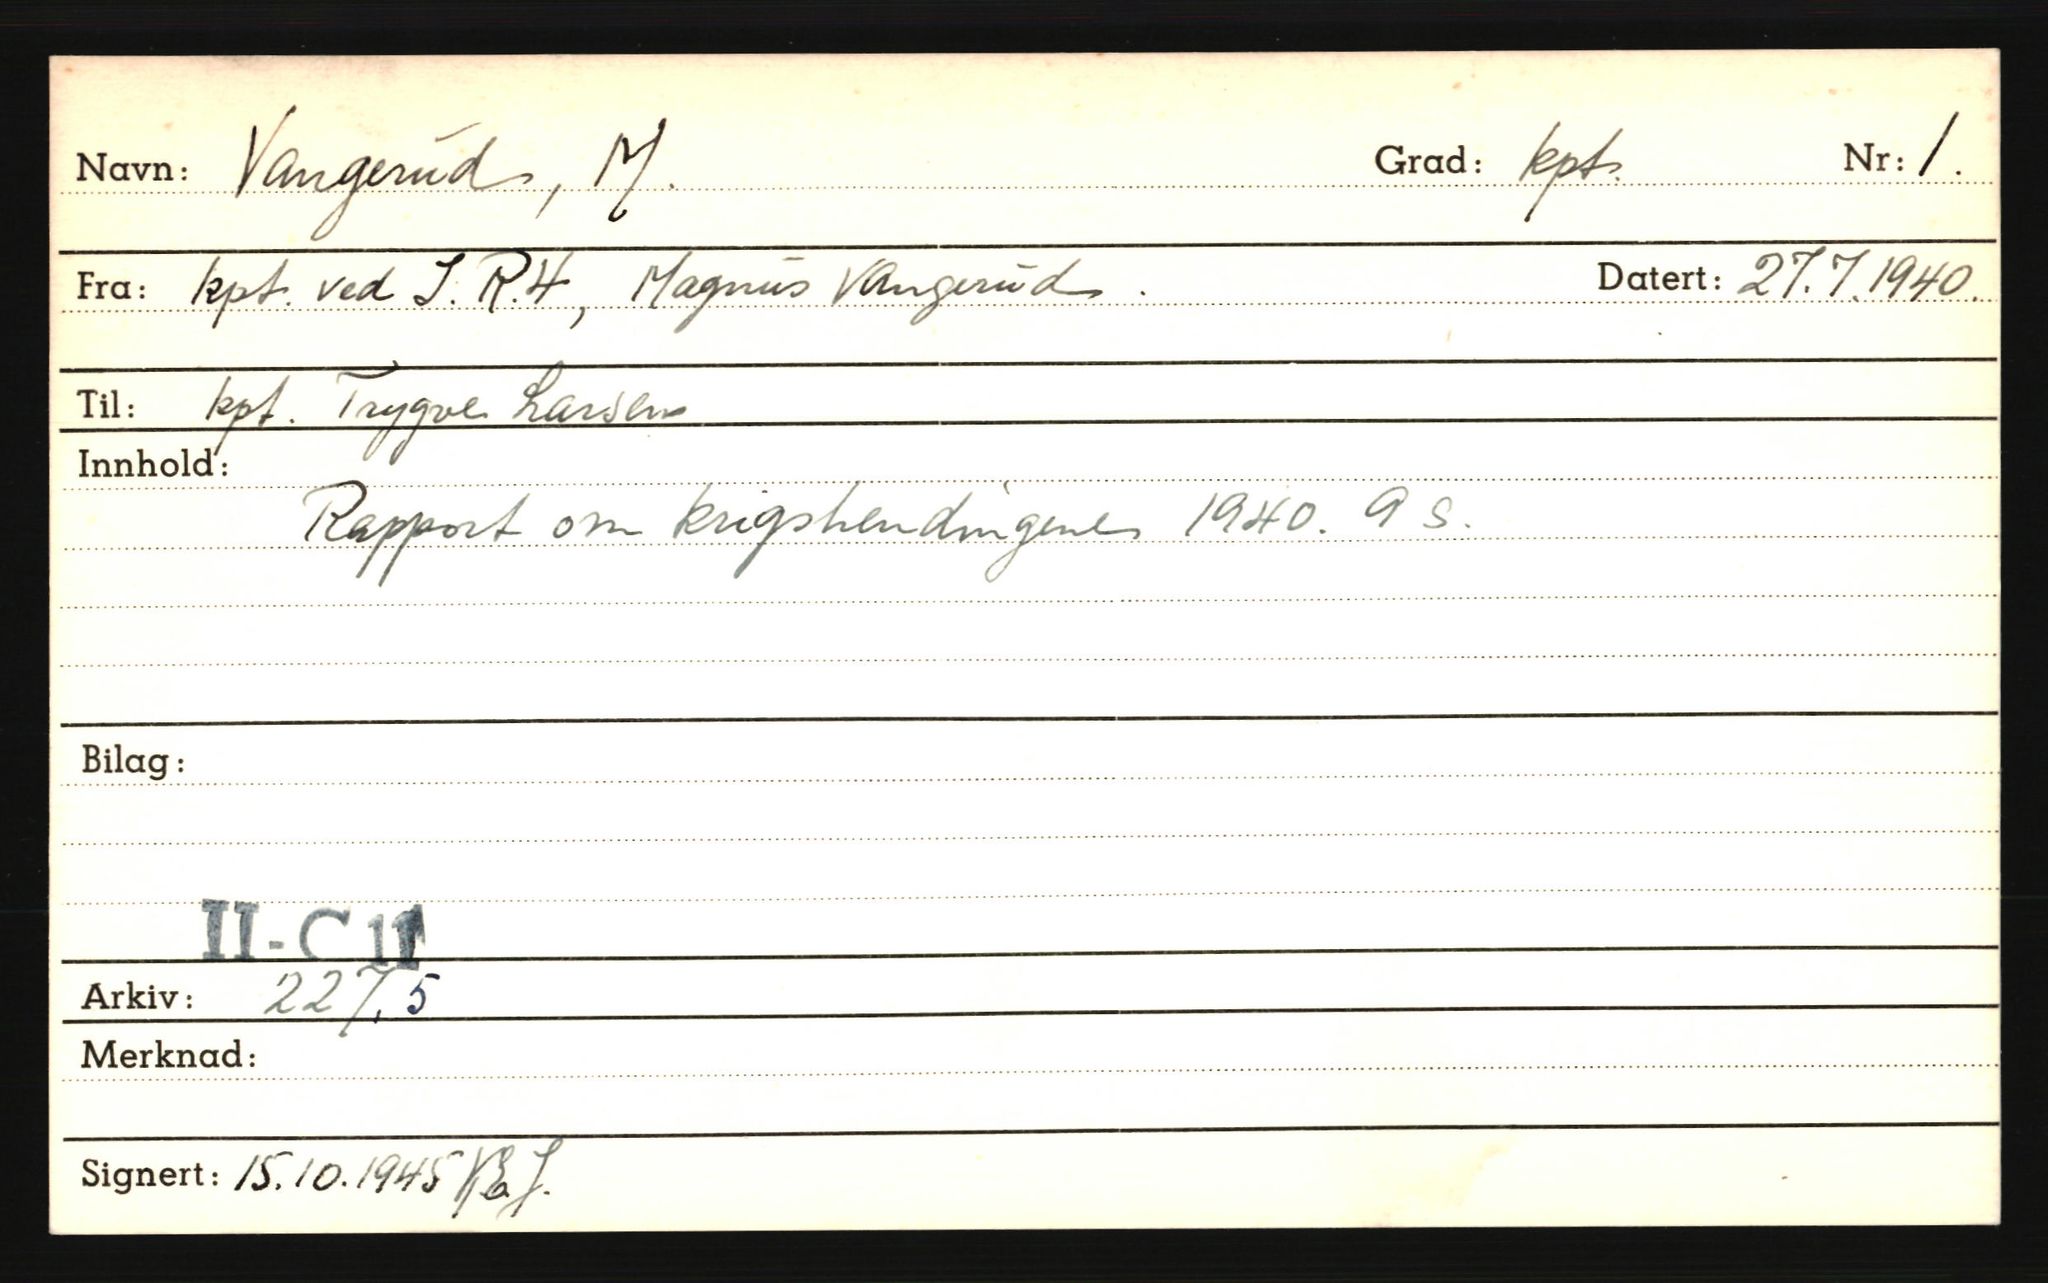 Navn: Vangerud, M. Grad: kpt. Nr: 1.
Fra: kpt. ved I.R.4, Magnus Vangerud. Datert: 27.7.1940.
Til: kpt. Trygve Larsen
Innhold:
Rapport om krigshendingene 1940. 9 s.
Bilag:
II-C 11
Arkiv: 227,5
Merknad:
Signert: 15.10.1945